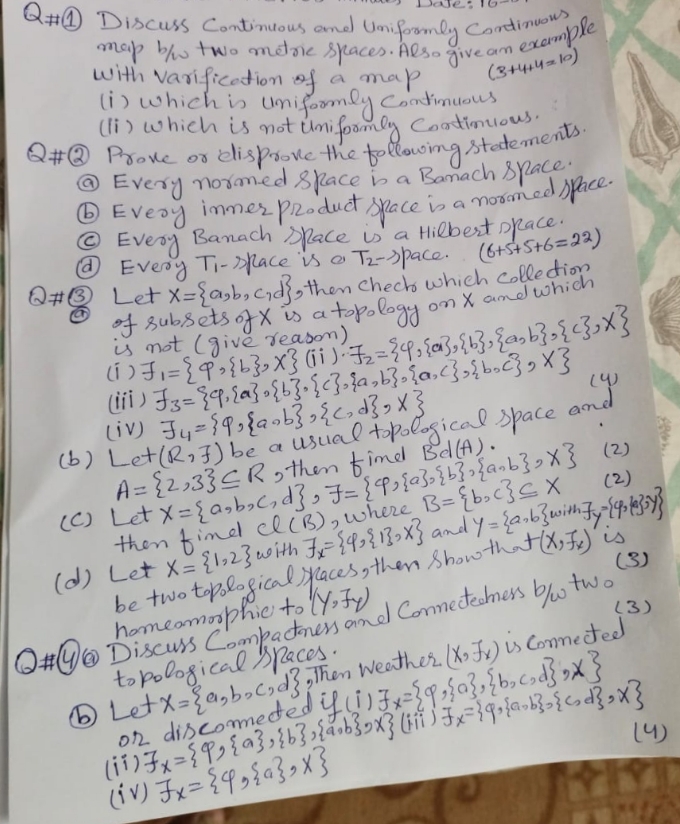 Date: 16-
Q#① Discuss Continuous and Uniformly Continuous
map b/w two metric spaces. Also give an example
with varification of a map (3+4+4=10)
(i) which is uniformly Continuous
(ii) which is not Uniformly Continuous.
Q#② Prove or disprove the following statements.
ⓐ Every normed space is a Banach space.
ⓑ Every inner product space is a normed space.
ⓒ Every Banach space is a Hilbert space.
ⓓ Every T₁-space is a T₂-space. (6+5+5+6=22)
Q#③ Let X={a,b,c,d}, then check which collection
ⓐ of subsets of X is a topology on X and which
is not (give reason)
(i) Ƒ₁={φ,{b},X} (ii). Ƒ₂={φ,{a},{b},{a,b},{c},X}
(iii) Ƒ₃={φ,{a},{b},{c},{a,b},{a,c},{b,c},X}
(iv) Ƒ₄={φ,{a,b},{c,d},X} (4)
(b) Let (R,Ƒ) be a usual topological space and
A={2,3}⊆R, then find Bd(A). (2)
(c) Let X={a,b,c,d}, Ƒ={φ,{a},{b},{a,b},X}
then find cl(B), where B={b,c}⊆X (2)
(d) Let X={1,2} with Ƒx={φ,{1},X} and Y={a,b} with Ƒy={φ,{a},Y}
be two topological spaces, then show that (X,Ƒx) is
homeomorphic to (Y,Ƒy) (3)
Q#④ⓐ Discuss Compactness and Connectedness b/w two
topological spaces. (3)
ⓑ Let X={a,b,c,d}, Then weather (X,Ƒx) is connected
or disconnected if (i) Ƒx={φ,{a},{b,c,d},X}
(ii) Ƒx={φ,{a},{b},{a,b},X} (iii) Ƒx={φ,{a,b},{c,d},X}
(iv) Ƒx={φ,{a},X} (4)